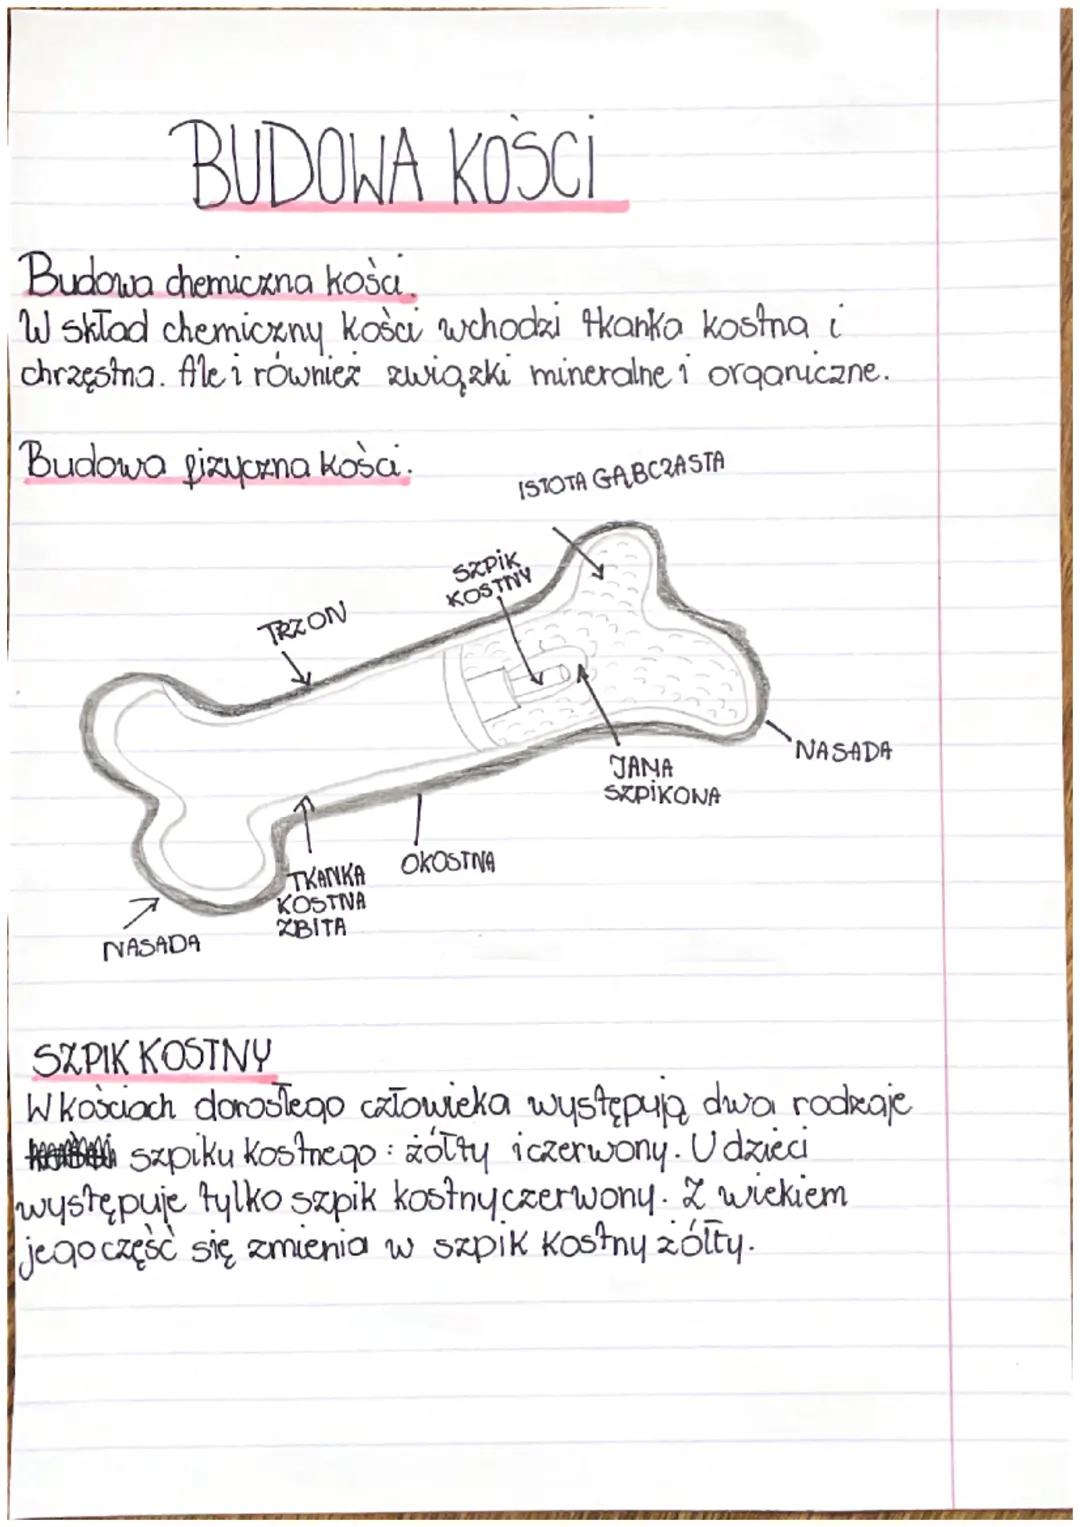 BUDOWA KOŚCI
Budowa chemiczna kości.
W skład chemiczny kości wchodzi tkanka kostna i
chrzęstna. Ale i również związki mineralne i organiczne.
Budowa fizyczna kości.
ISTOTA GĄBCZASTA
SZPIK
KOSTNY
TRZON
NASADA
JAMA
SZPIKONA
OKOSTNA
TKANKA
KOSTNA
ZBITA
NASADA
SZPIK KOSTNY
W kościach dorosłego człowieka występują dwa rodzaje
szpiku kostnego : żółty i czerwony. U dzieci
występuje tylko szpik kostny czerwony. Z wiekiem
jego część się zmienia w szpik kostny żółty.